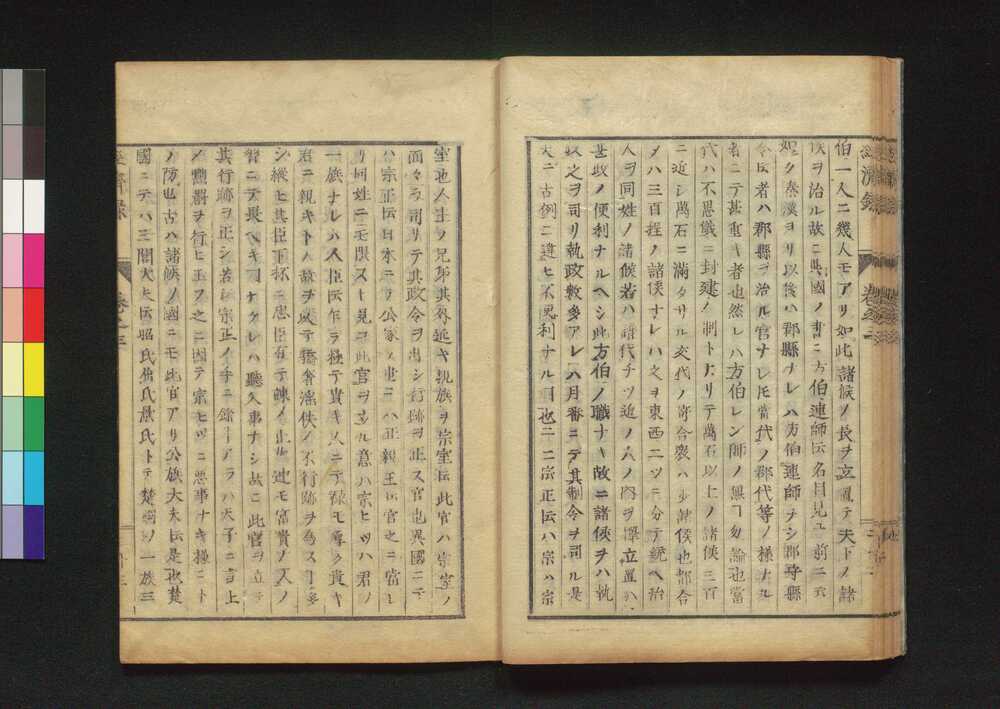 伯一人ニ幾人モアリ如此諸候ノ長ヲ立置テ夫トノ隷
侯ヲ治ル故ニ異國ノ書ニ方伯連師伝名目見ユ前ニ云
如ク秦漢ヨリ以後ハ郡縣ナレハ方伯連師ナシ郡守縣
令伝者ハ郡縣ヲ治ル官ナレ𪜈當代ノ郡代等ノ様ナル
者ニテ甚重キ者也然レハ方伯レン師ノ無ヿ勿論也當
代ハ不思儀ニ封建ノ制トナリテ萬石以上ノ諸侯三百
ニ近シ萬石ニ滿タサル交代ノ寄合衆ハ少諸侯也都合
メハ三百程ノ諸侯ナレハ之ヲ東西二ツ三ニ分テ統ヘ治
人ヲ同姓ノ諸候若ハ譜代チツ近ノ人ノ内ヲ擇立置ハ
甚政ノ便利ナルヘシ此方伯ノ職ナキ故ニ諸侯ヲハ執
政之ヲ司リ執政数多アレハ月番ニテ其制令ヲ司ル是
大ニ古例ニ違ヒ不便利ナルヿ也二ニ宗正伝ハ宗ハ宗
室也人主ノ兄弟其外近キ親族ヲ宗室伝此官ハ宗室ノ
面々ヲ司リテ其政令ヲ出シ行跡ヲ正ス官也異國ニテ
ハ宗正伝日本ニテ公家ノ重ニハ正親王伝官之ニ當レ
リ同姓ニモ限ス
一族ナレハ人臣伝乍ラ極テ貴キ人ニテ禄モ厚ク貴キ
君ニ親キト人故ヲ以テ驕奢淫佚ノ不行跡ヲ為スヿ多
シ縦ヒ其臣下杯ニ忠臣有テ諫ノ止ル迚モ富貴ノ人ノ
習ニテ畏ヘキヿナクレハ聽入事ナシ故ニ此官ヲ立テ
其行跡ヲ正シ若シ宗正ノ手ニ餘ヿアラハ天子ニ言上
メ黜罰ヲ行ヒ玉フ之ニ因テ宗ヒツニ悪事ナキ様ニト
ノ防也古ハ諸候ノ國ニモ此官アリ公族大夫伝是也楚
國ニテハ三閭大夫伝昭氏屈氏景氏トテ楚國ノ一族三